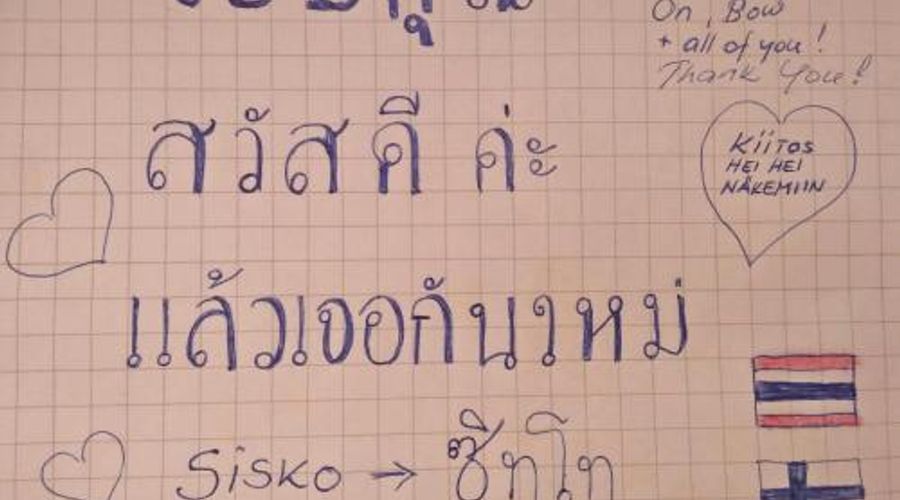 On, Bow
+ all of you!
Thank You!
สวัสดี ค่ะ
Kiitos
HEI HEI
NÄKEMIIN
แล้วเจอกันาหม่
Sisko →